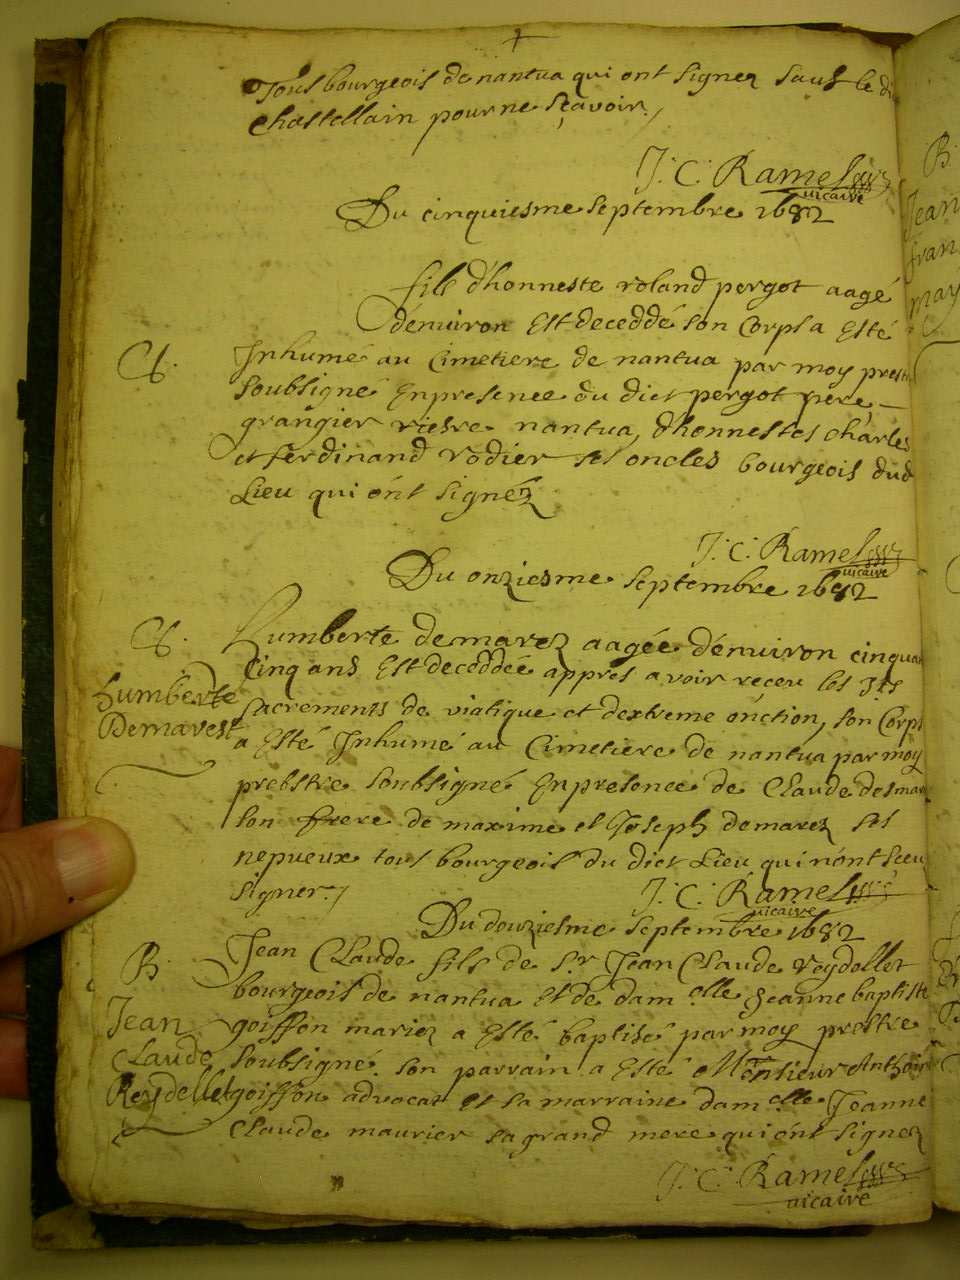 Tous bourgeois de nantua qui ont signez sauf le d
Chastellain pour ne sçavoir
J. C. Ramel
vicaire
Du cinquiesme septembre 1682
fils d'honneste roland pergot aagé
denviron est deceddé son corps a esté
Ct. Inhumé au cimetiere de nantua par moy prest
soubsigné en presence du dict pergot pere
grangier riesre nantua, d'honnestes charles
et ferdinand rodier ses oncles bourgeois dud
Lieu qui ont signéz
J. C. Ramel
vicaire
Du onziesme septembre 1682
Ct. humberte demarez aagée d'environ cinquan
cinq ans est deceddée appres avoir receu les sts
humberte sacrements de viatique et dextreme onction, son corps
Demarest a esté Inhumé au cimetiere de nantua par moy
prebstre soubsigné en presence de Claude desmar
son frere de maxime et Joseph demarez ses
nepueux tous bourgeois du dict Lieu qui n'ont sceu
signer
J. C. Ramel
vicaire
Du douziesme septembre 1682
B. Jean Claude fils de sr Jean Claude reydellet
bourgeois de nantua et de dam.elle Jeanne baptiste
Jean goiffon mariez a esté baptisé par moy prestre
Claude soubsigné son parrain a esté Monsieur Anthoi
Reydellet goiffon advocat et sa marraine dam.elle Jeanne
Claude maurier sa grand mere qui ont signez
J. C. Ramel
vicaire
B.
Jean
fran
may